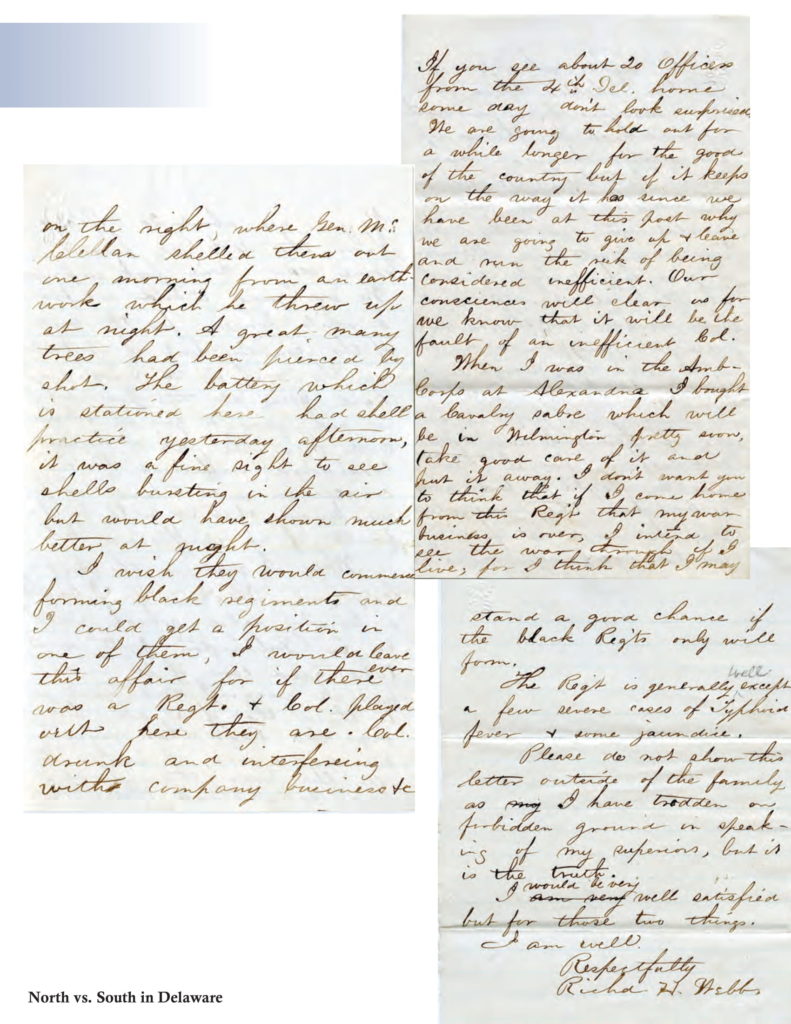 on the right, where Gen. Mc
Clellan shelled them out
one morning from an earth-
work which he threw up
at night. A great many
trees had been pierced by
shot. The battery which
is stationed here had shell
practice yesterday afternoon,
it was a fine sight to see
shells bursting in the air
but would have shown much
better at night.
I wish they would commence
forming black regiments and
I could get a position in
one of them, I would leave
this affair for if there ever
was a Regt. & Col. played
out here they are. Col.
drunk and interfereing
with company business &c
If you see about 20 Officers
from the 4th Del. home
some day don't look surprised,
We are going to hold out for
a while longer for the good
of the country but if it keeps
on the way it has since we
have been at this post why
we are going to give up & leave
and run the risk of being
considered inefficient. Our
consciences will clear us for
we know that it will be the
fault of an inefficient Col.
When I was in the Amb-
Corps at Alexandria I bought
a Cavalry sabre which will
be in Wilmington pretty soon,
take good care of it and
put it away. I don't want you
to think that if I come home
from this Regt that my war
business is over, I intend to
see the war through if I
live; for I think that I may
stand a good chance if
the black Regts only will
form.
The Regt is generally well except
a few severe cases of Typhoid
fever & some jaundice.
Please do not show this
letter outside of the family
as my I have trodden on
forbidden ground in speak-
ing of my superiors, but it
is the truth.
I would be very
am very well satisfied
but for those two things.
I am well.
Respectfully
Richd. H. Webb
North vs. South in Delaware